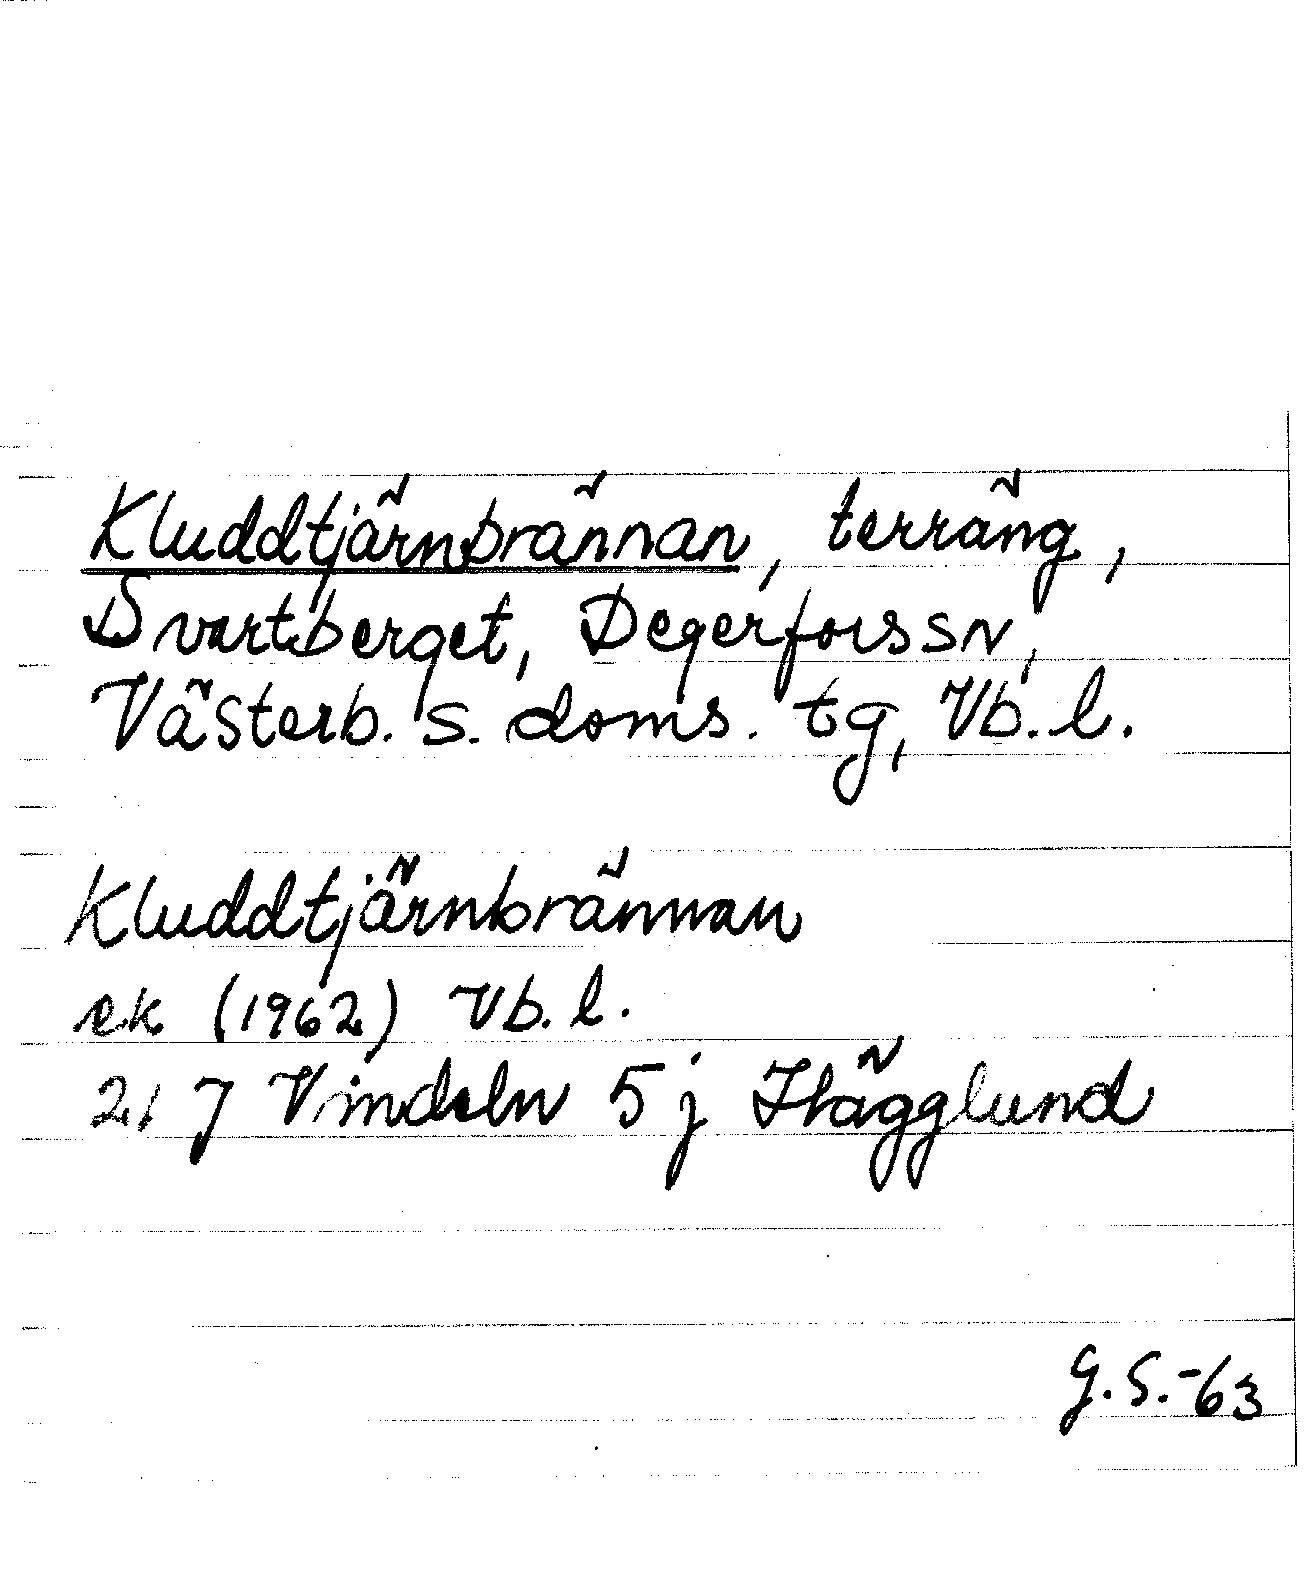 Kluddtjärnbrännan, terräng,
Svartberget, Degerfors sn,
Västerb. s. doms. tg, Vb. l.
Kluddtjärnbrännan
ek (1962) Vb. l.
21 J Vindeln 5 j Hägglund
G.S.-63